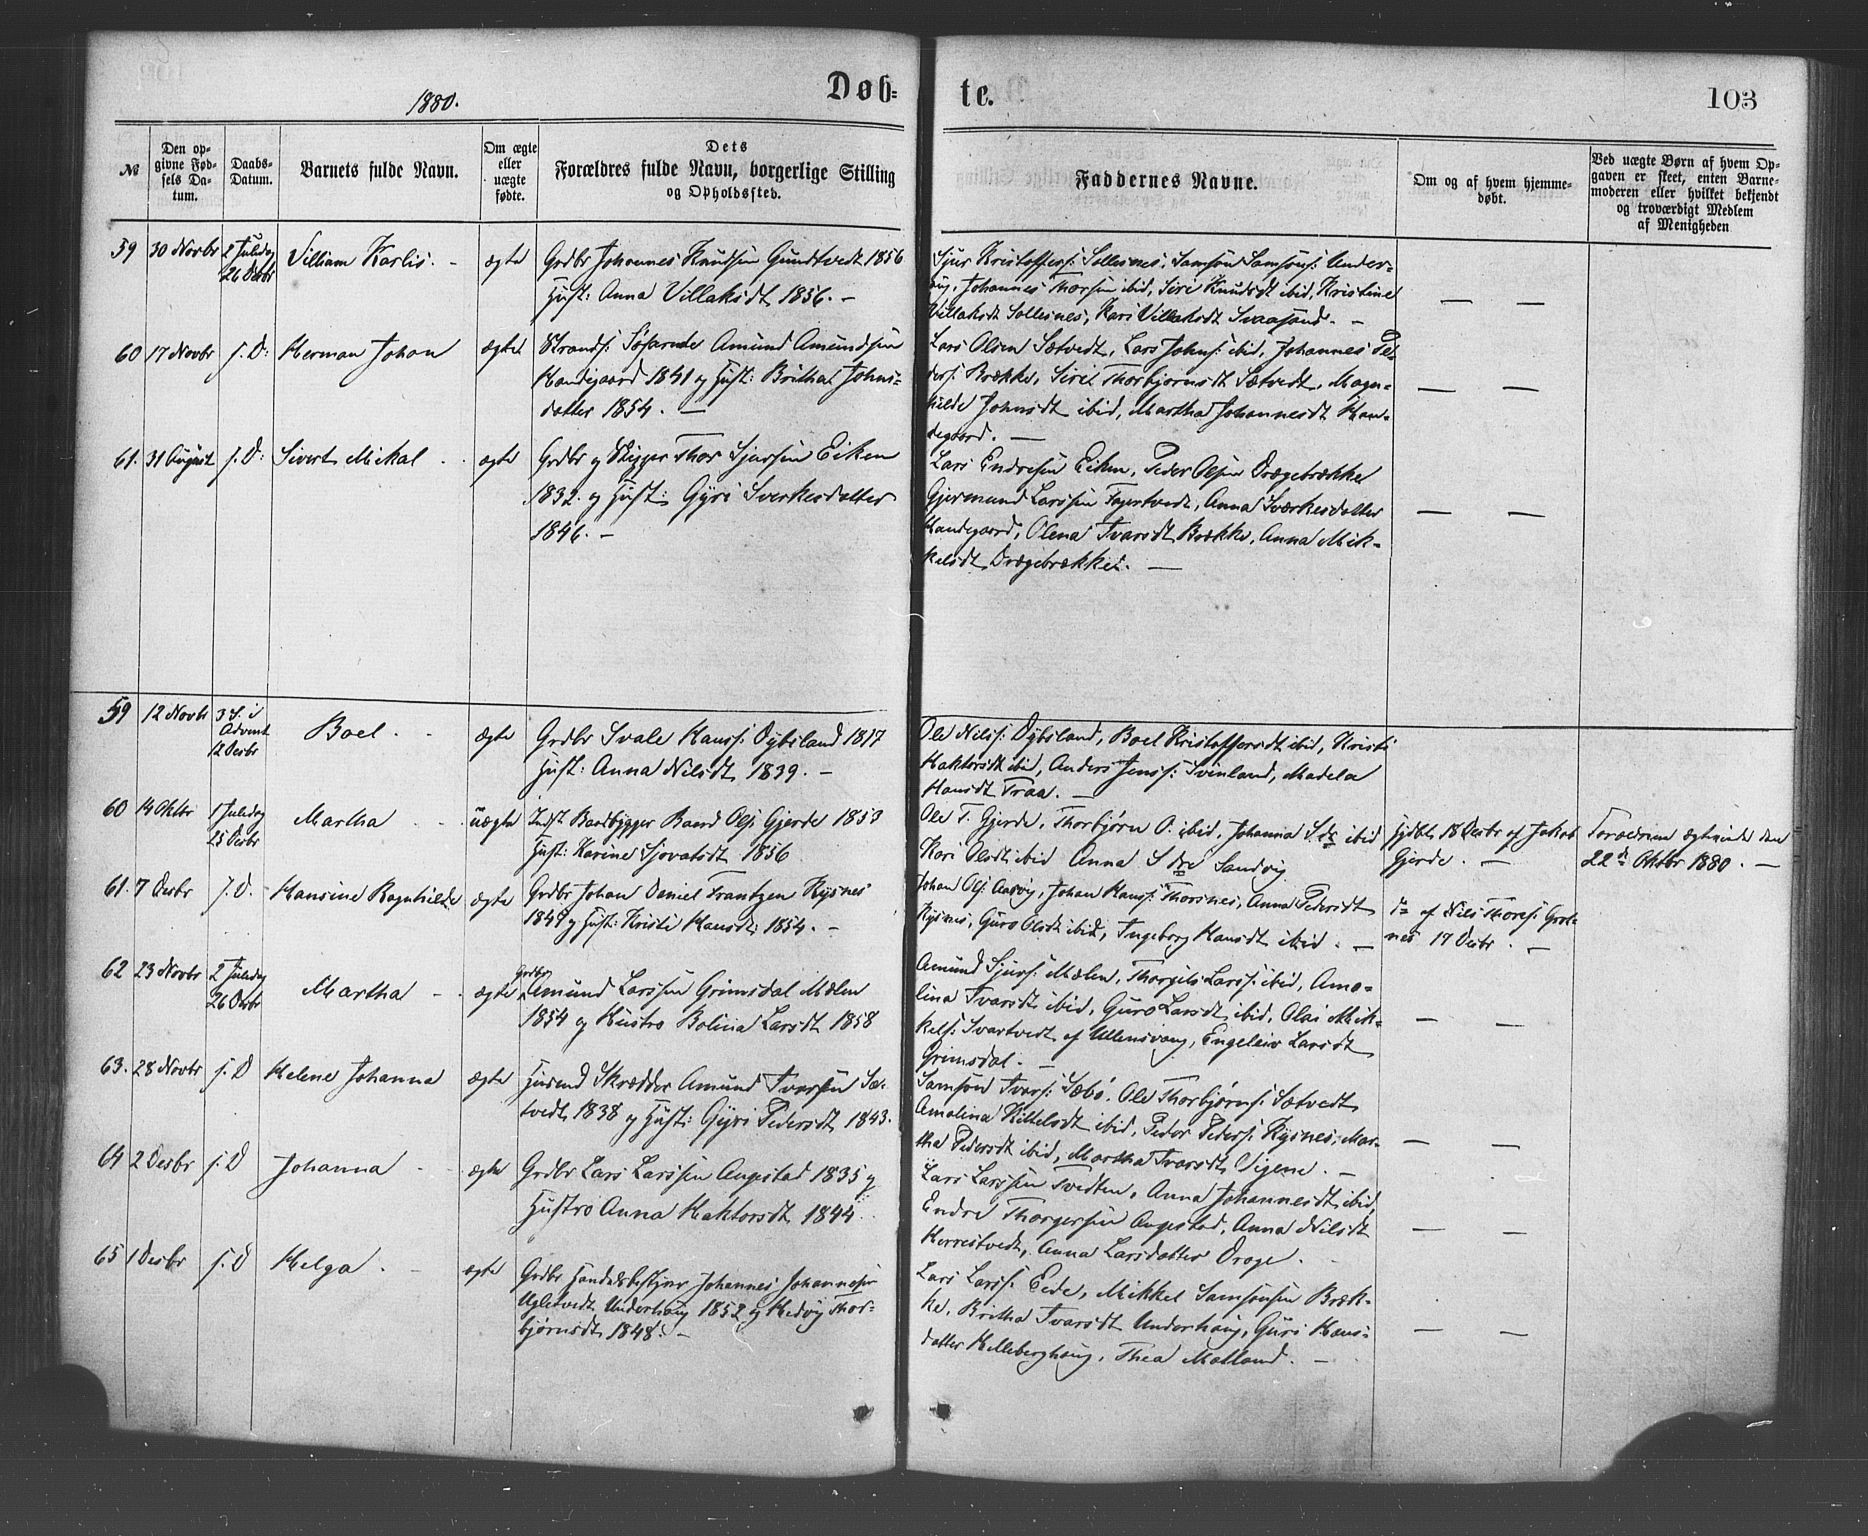 1880.
Døb=
te.
103
№
Den op-
givne Fød-
sels Da-
tum.
Daabs-
Datum.
Barnets fulde Navn.
Om ægte
eller
uægte
fødte.
Dets
Forældres fulde Navn, borgerlige Stilling
og Opholdssted.
Faddernes Navne.
Om og af hvem hjemme-
døbt.
Ved uægte Børn af hvem Op-
gaven er skeet, enten Barne-
moderen eller hvilket bekjendt
og troværdigt Medlem
af Menigheden
59 30 Novbr 2 Juledag
26 Desbr
Villiam Karlis. - ægte
Grdbr Johannes Knudsen Gundtvedt 1856
Hust: Anna Villaksdt 1856. -
Sjur Kristoffers: Sollesnes, Samson Samsons: Under-
haug, Johannes Thorsen ibid, Siri Knudsdt ibid, Kristine
Villaksdt Sollesnes, Kari Villaksdt Svaasand. -
60 17 Novbr s. D: Herman Johan ægte
Strands: Søfarende Amund Amundsen
Handegaard 1841 og Hust: Britha Johns-
datter 1854. -
Lars Olsen Sætvedt, Lars Johns: ibid, Johannes Pe-
ders: Brække, Siri Thorbjørnsdt Sætvedt, Magn-
hilde Johnsdt ibid, Martha Johannesdt Han-
degaard. -
61. 31 August s. D: Sivert Mikal - ægte
Grdbr og Skipper Thor Sjursen Eiken
1832. og Hust: Gyri Sverkesdatter
1846. -
Lars Endresen Eiken, Peder Olsen Drægebrække
Gjermund Larssen Fagertvedt, Anna Sværkesdatter
Handegaard, Olena Ivarsdt Brække, Anna Mik-
kelsdt Drægebrække. -
59 12 Novbr 3 S. i
Advent
12 Desbr
Boel - - ægte
Grdbr Svale Hanss: Dybsland 1817
Hust: Anna Nilsdt 1839. -
Ole Nilss: Dybsland, Boel Kristoffersdt ibid, Kristi
Haktorsdt ibid, Anders Jenss: Svinland, Madela
Hansdt Traa. -
60 14 Oktbr 1 Juledag
25 Desbr
Martha - - uægte
Indst Baadbygger Baard Ols: Gjerde 1853
Hust: Karine Sjovatsdt 1856
Ole T. Gjerde, Thorbjørn O. ibid, Johanna S. dr ibid
Kari Olsdt ibid Anna S dre Sandvig.
Hjdbt 18 Desbr af Jakob
Gjerde. -
Foræld​rene ægteviede den
22de Oktbr 1880. -
61. 7 Desbr s. D. Hansine Ragnhilde ægte
Grdbr Johan Daniel Frantzen Rysnes
1849 og Hust: Kristi Hansdt 1854. -
Johan Ols: Aasvig, Johan Hanss: Thorsnes, Anna Pedersdt
Rysnes, Guro Olsdt ibid, Ingeborg Hansdt ibid. -
do af Nils Thores: Grot-
nes 17 Desbr. -
62 23 Novbr 2 Juledag
26 Desbr
Martha - - ægte
Grdbr
Amund Larssen Grimsdal Mælen
1854 og Hustro Bolina Larsdt 1858
Amund Sjurs: Mælen, Thorgils Larss: ibid, Ama-
lina Ivarsdt ibid, Guro Larsdt ibid, Olai Mik-
kels: Svartvedt af Ullensvang, Engeleiv Larsdt
Grimsdal. -
63. 28 Novbr s. D Helene Johanna ægte
Husmd Skrædder Amund Ivarsen Sæ-
tvedt 1838 og Hust: Gyri Pedersdt 1843.
Samson Ivars: Sæbø, Ole Thorbjørns: Sætvedt
Amalina Kittelsdt ibid, Peder Peders: Rysnes, Mar-
tha Pedersdt ibid, Martha Ivarsdt Digene. -
64 2 Desbr s. D Johanna - - ægte
Grdbr Lars Larssen Augestad 1835 og
Hustro Anna Haktorsdt 1844.
Lars Larssen Tvedten, Anna Johannesdt ibid,
Endre Thorgersen Augestad, Anna Nilsdt
Herrestvedt, Anna Larsdatter Droge.
65 1 Desbr s. D Helga. - ægte
Grdbr Handelsbestyrer Johannes Johannesen
Ugletvedt Underhaug 1852 og Hedvig Thor-
bjørnsdt 1848. -
Lars Larss: Eide, Mikkel Samsonsen Bræk-
ke, Britha Ivarsdt Underhaug, Guri Hans-
datter Helleberghaug, Thea Matland. -